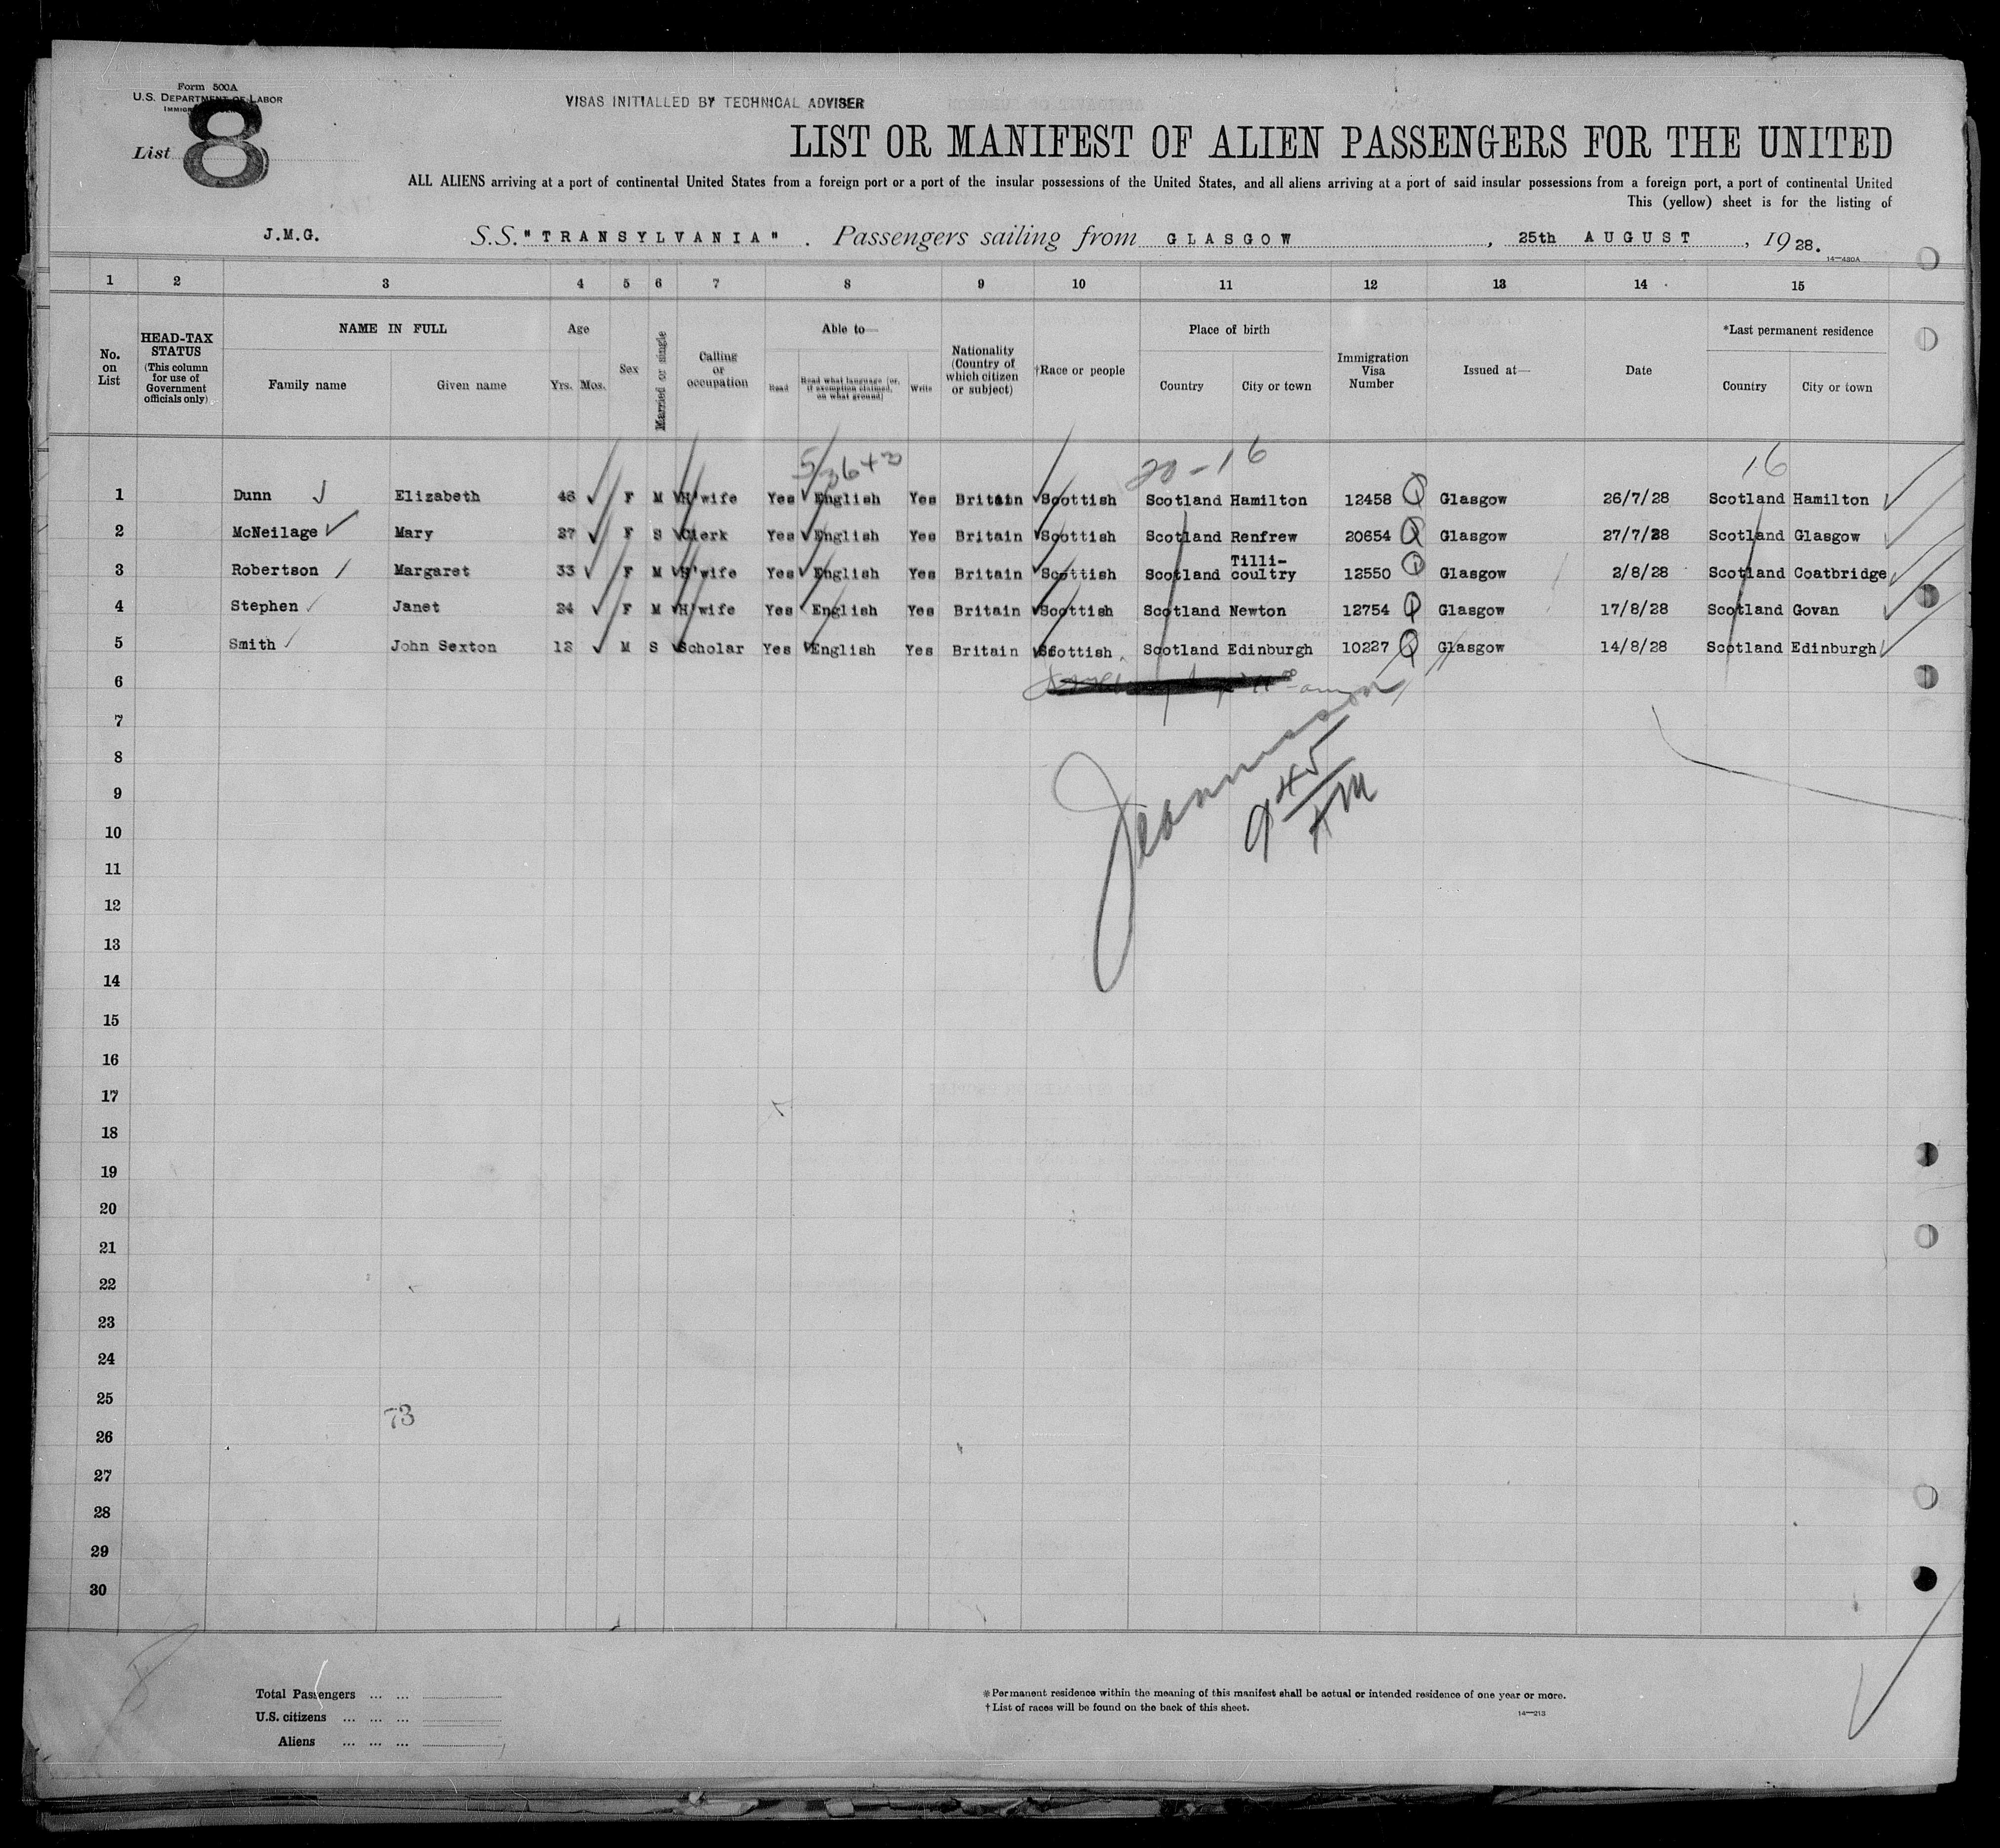 Form 500A
U.S. DEPARTMENT OF LABOR
List 8
VISAS INITIALLED BY TECHNICAL ADVISER
LIST OR MANIFEST OF ALIEN PASSENGERS FOR THE UNITED
ALL ALIENS arriving at a port of continental United States from a foreign port or a port of the insular possessions of the United States, and all aliens arriving at a port of said insular possessions from a foreign port, a port of continental United
This (yellow) sheet is for the listing of
J.M.G. S.S. "TRANSYLVANIA". Passengers sailing from GLASGOW, 25th AUGUST, 1928.
14—430A
1 2 3 4 5 6 7 8 9 10 11 12 13 14 15
No. on List
HEAD-TAX STATUS (This column for use of Government officials only)
NAME IN FULL Family name Given name
Age Yrs. Mos.
Sex
Married or single
Calling or occupation
Able to— Read Read what language (or, if exemption claimed, on what ground) Write
Nationality (Country of which citizen or subject)
†Race or people
Place of birth Country City or town
Immigration Visa Number
Issued at—
Date
*Last permanent residence Country City or town
20-16 16
1 Dunn Elizabeth 46 F M H'wife Yes English Yes Britain Scottish Scotland Hamilton 12458 Glasgow 26/7/28 Scotland Hamilton
2 McNeilage Mary 27 F S Clerk Yes English Yes Britain Scottish Scotland Renfrew 20654 Glasgow 27/7/28 Scotland Glasgow
3 Robertson Margaret 33 F M H'wife Yes English Yes Britain Scottish Scotland Tilli-coultry 12550 Glasgow 2/8/28 Scotland Coatbridge
4 Stephen Janet 24 F M H'wife Yes English Yes Britain Scottish Scotland Newton 12754 Glasgow 17/8/28 Scotland Govan
5 Smith John Sexton M S Scholar Yes English Yes Britain Scottish Scotland Edinburgh 10227 Glasgow 14/8/28 Scotland Edinburgh
6
7
8
9 945 AM
10
11
12
13
14
15
16
17
18
19
20
21
22
23
24
25
73
26
27
28
29
30
Total Passengers ... ...
U.S. citizens ... ... ...
Aliens ... ... ...
*Permanent residence within the meaning of this manifest shall be actual or intended residence of one year or more.
†List of races will be found on the back of this sheet.
14—213